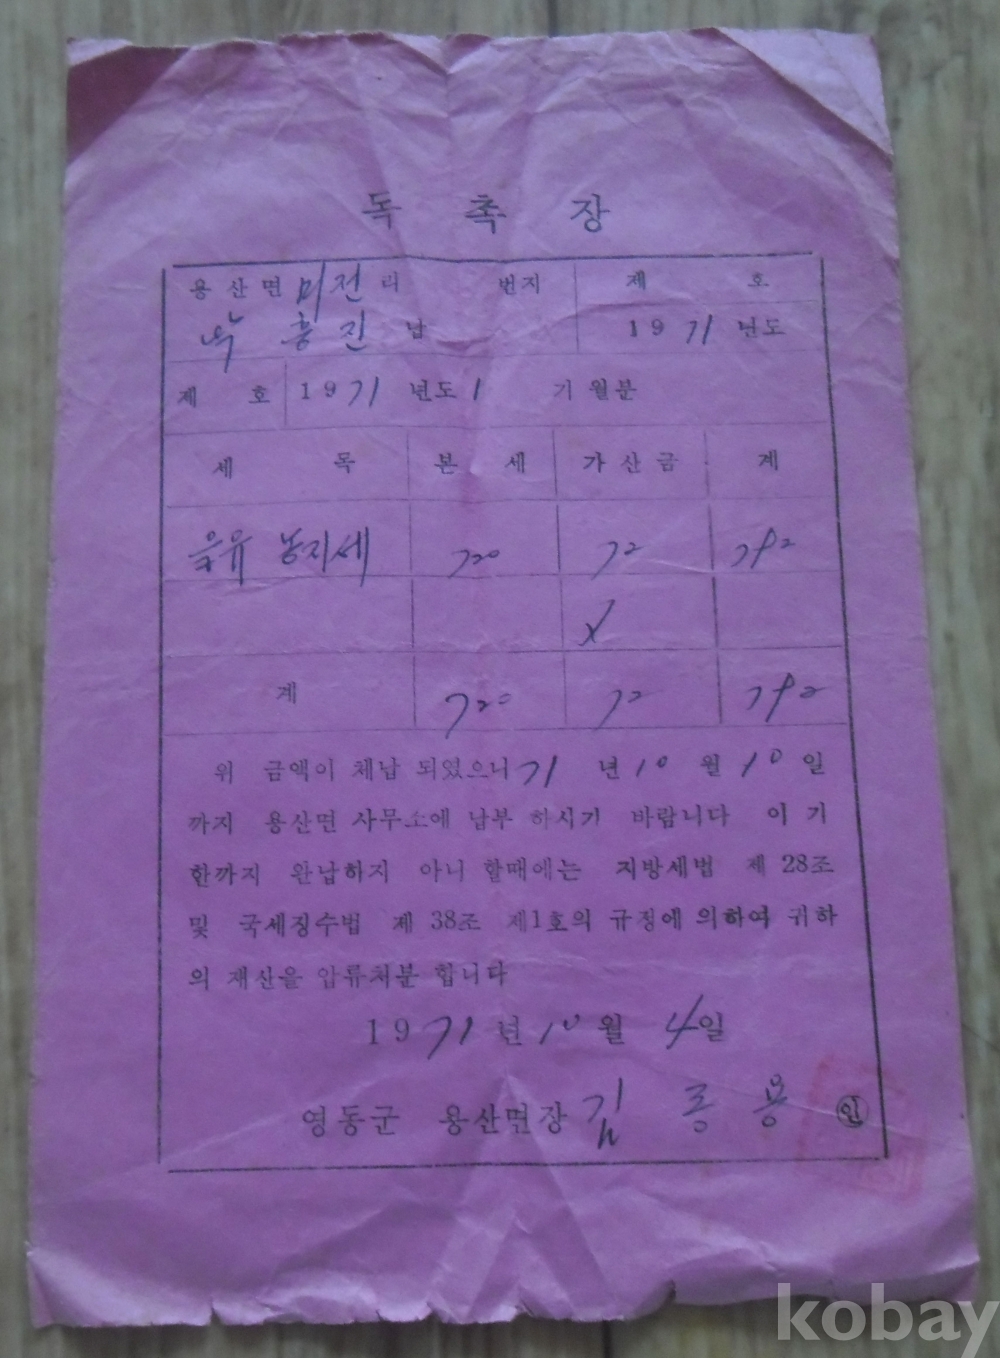 독 촉 장
용산면 미전 리 번지 제 호
흥진 납 1971 년도
제 호 1971 년도 1 기 월분
세 목 본 세 가산금 계
농지세 720 72 792
계 720 72 792
위 금액이 체납 되였으니 71 년 10 월 10 일
까지 용산면 사무소에 납부 하시기 바랍니다 이 기
한까지 완납하지 아니 할때에는 지방세법 제 28조
및 국세징수법 제 38조 제1호의 규정에 의하여 귀하
의 재산을 압류처분 합니다
1971 년 10 월 4 일
영동군 용산면장 김 용 인
kobay